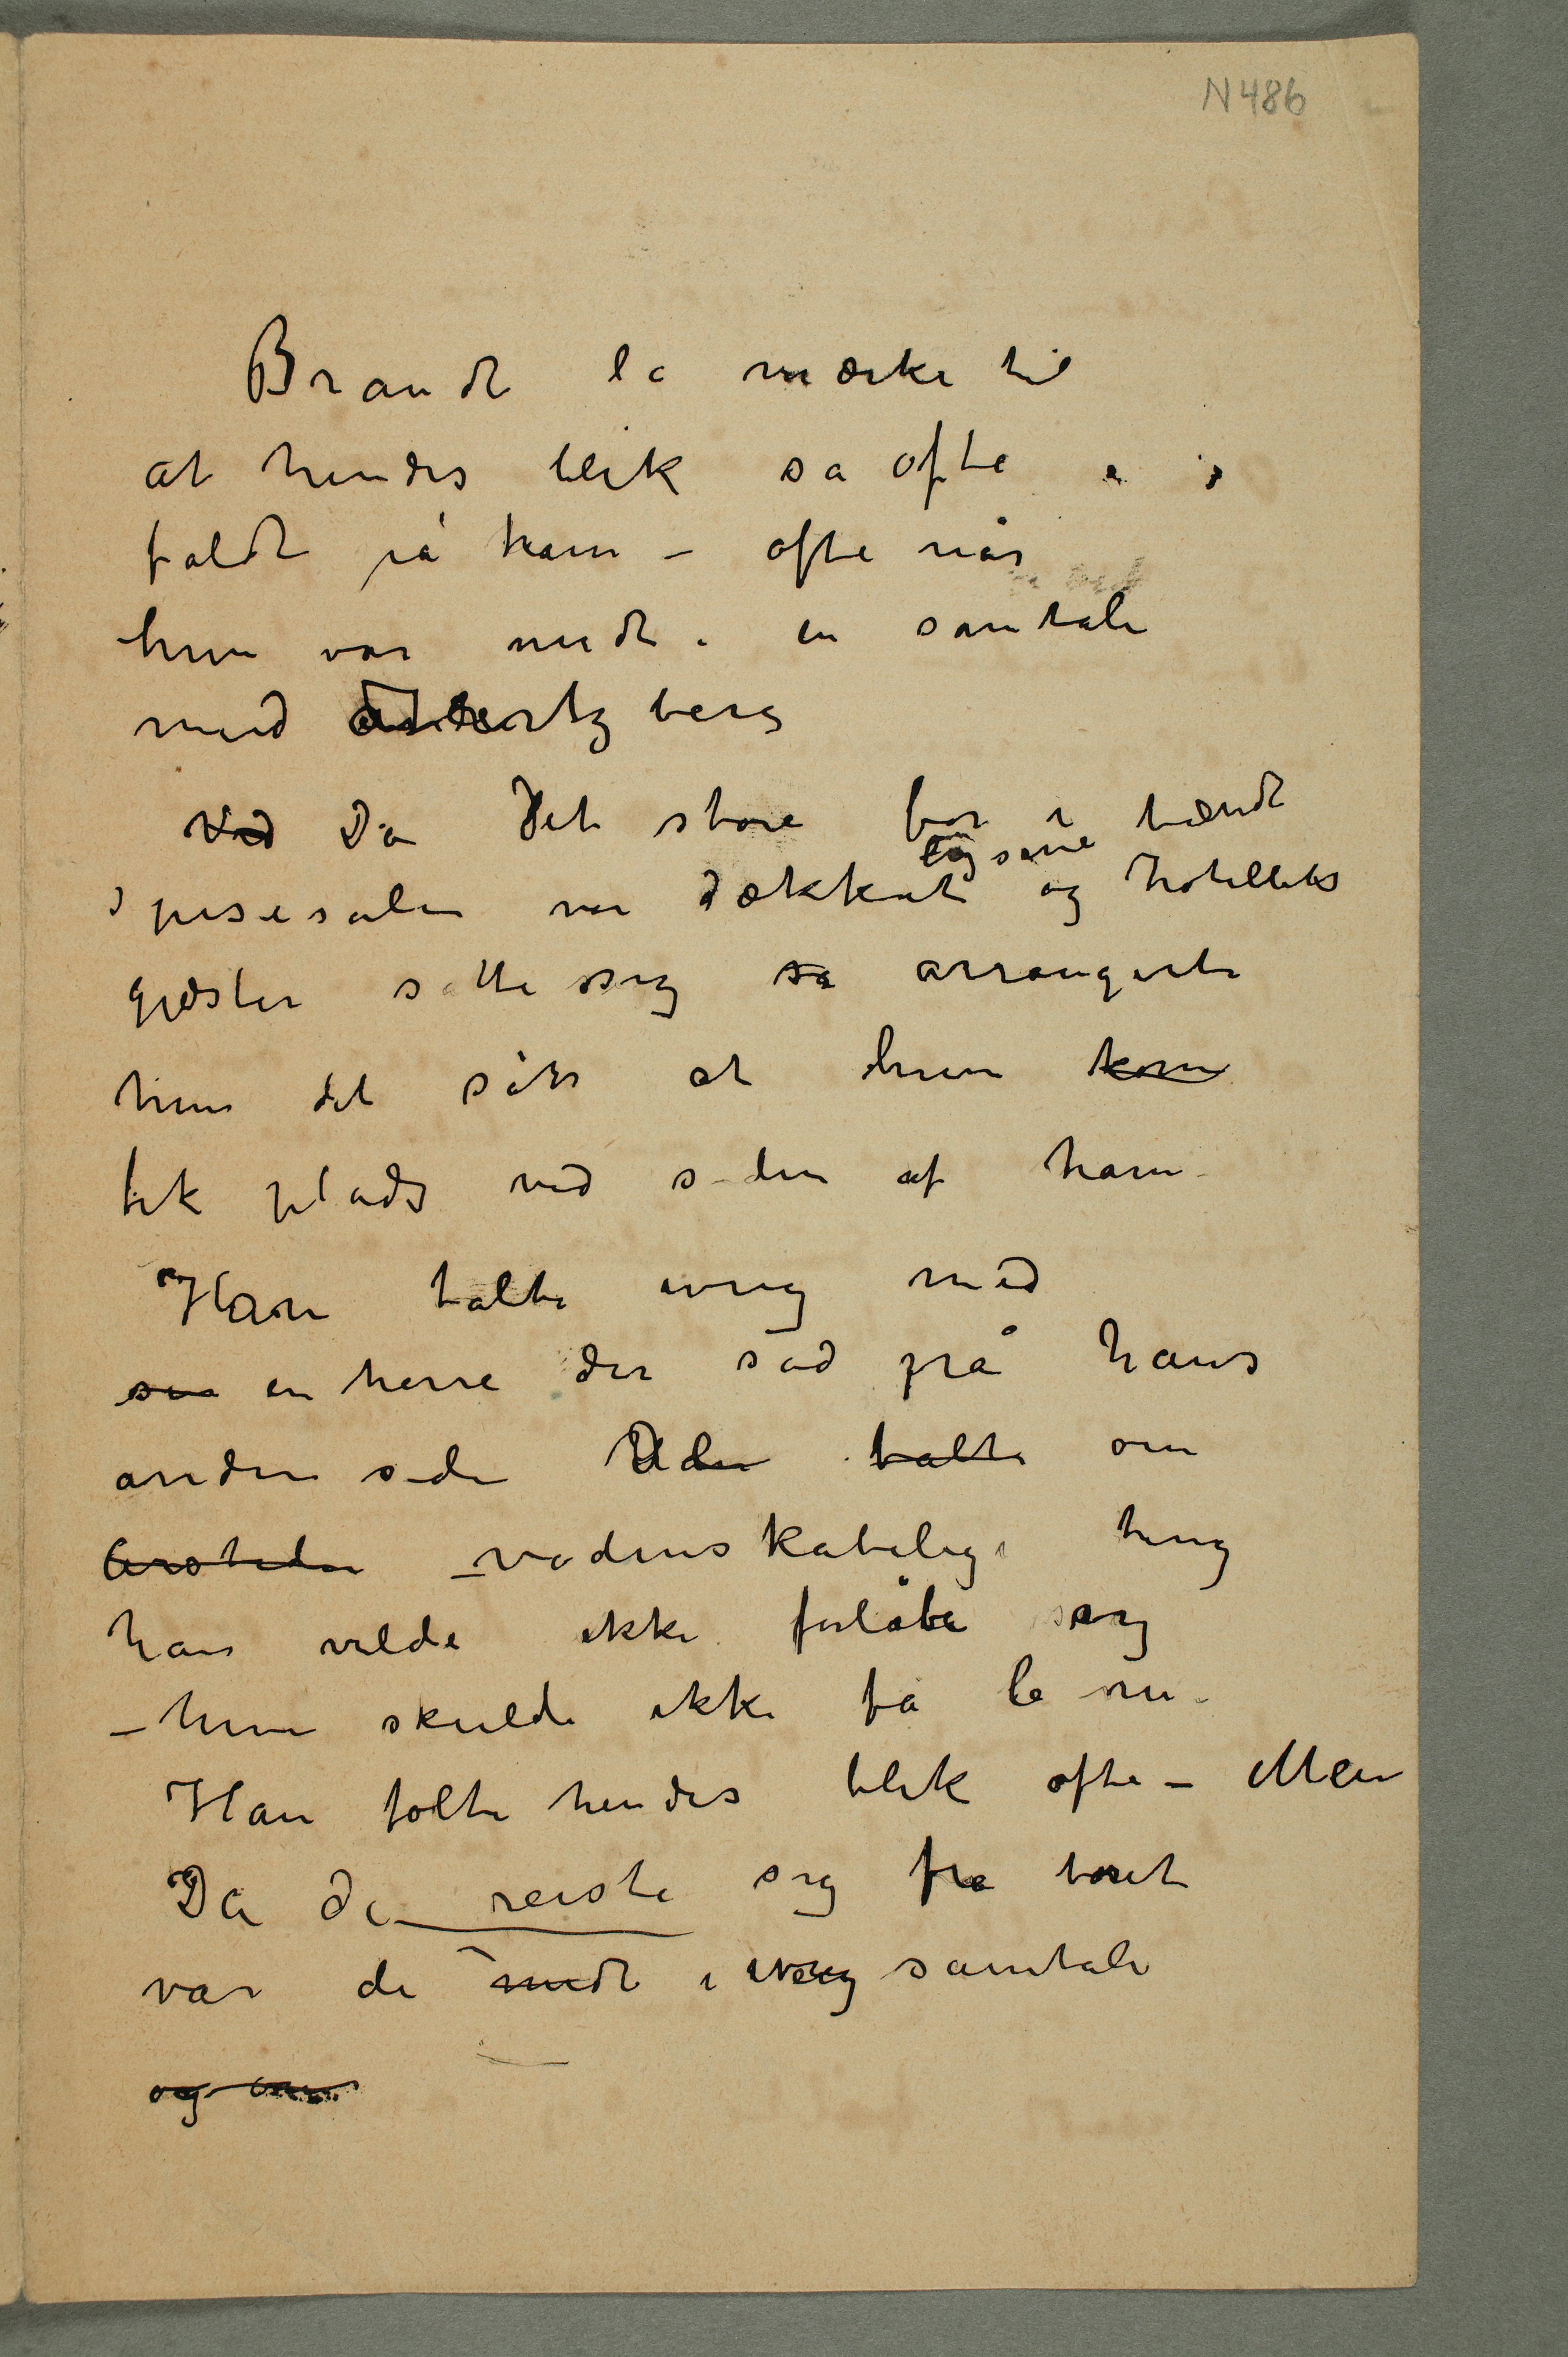 N 486
Brandt la mærke til
at hendes blik så ofte
faldt på ham – ofte når
hun var midt i en samtale
med berg
Ved Da Det store bor i tændt
lysene
spisesalen var dækket og hotellets
gjæster satte sig så arrangerte
hun det sått at hun kom
fik plads ved siden af ham
Han talte ivrig med
sin en herre der sad på hans
anden side talte om
videnskabelige ting
han vilde ikke forløbe sig
– hun skulde ikke få le nu
Han følte hendes blik ofte – Men
Da de reiste sig fra boret
var de midt i ivrig samtale
og